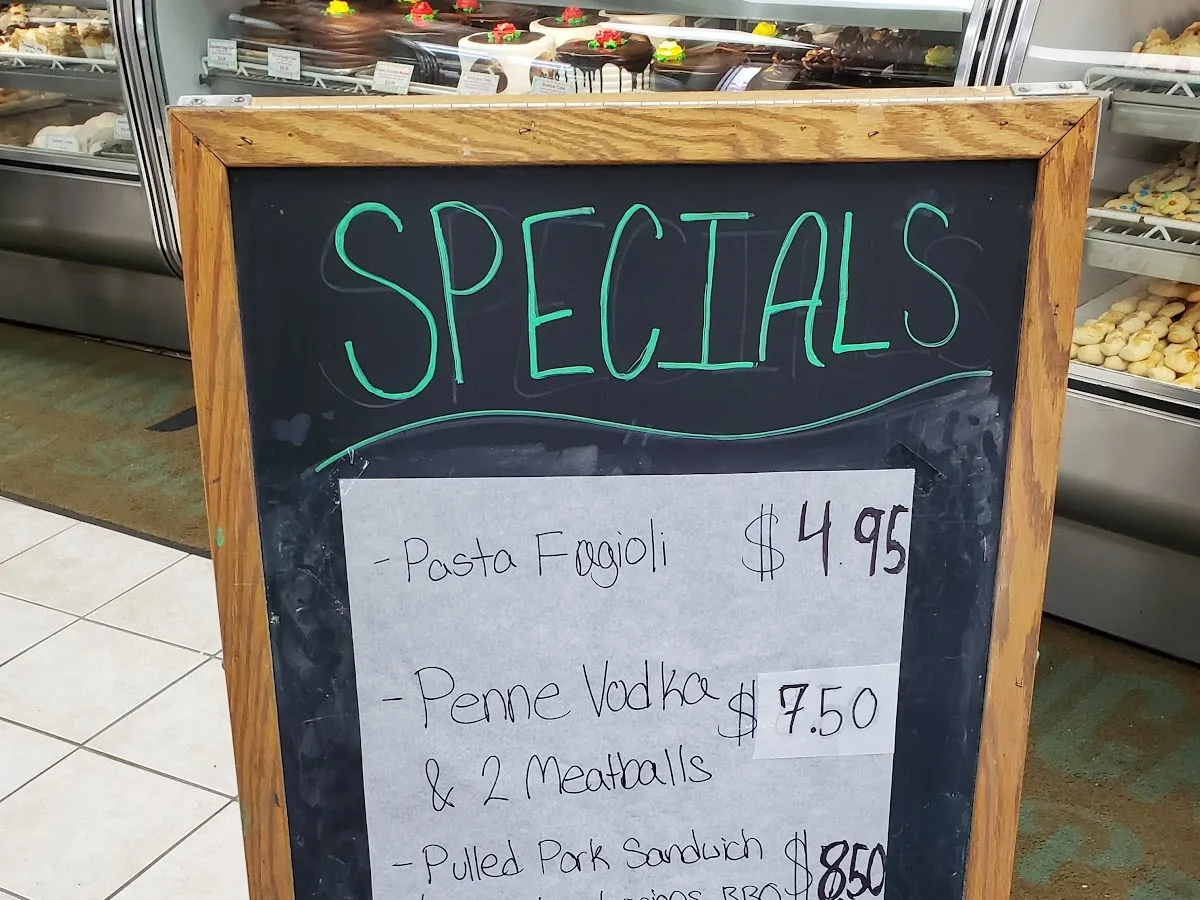 SPECIALS
- Pasta Fagioli $4.95
- Penne Vodka $7.50
& 2 Meatballs
- Pulled Pork Sandwich $850
BBQ